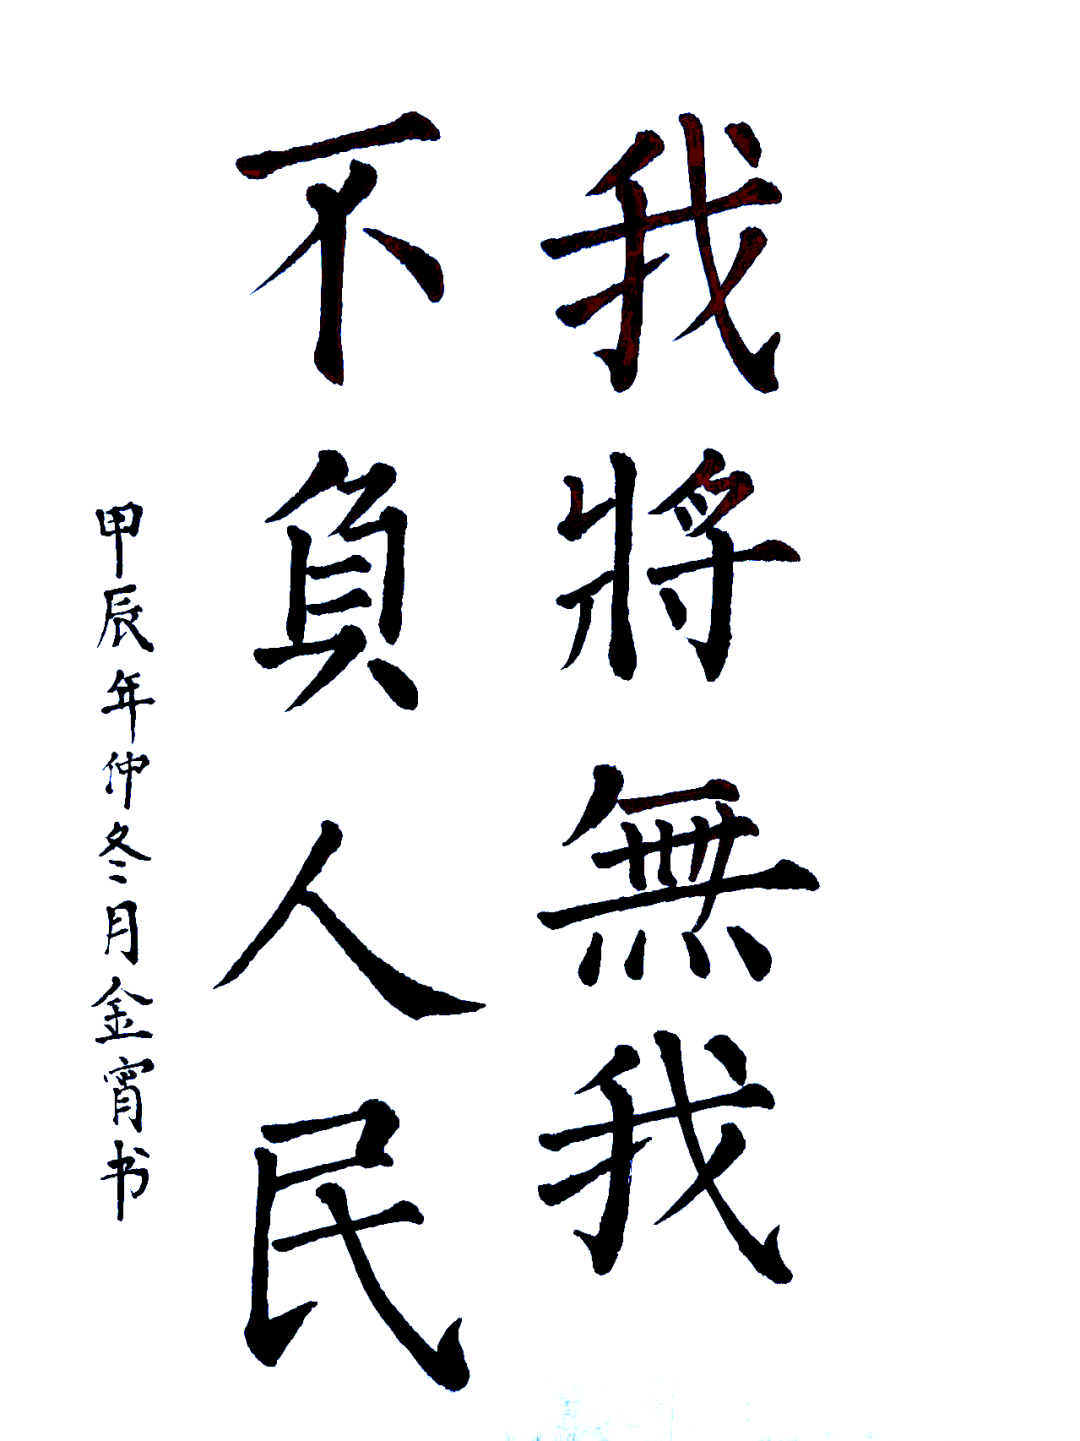 我將無我
不負人民
甲辰年仲冬月金宵书